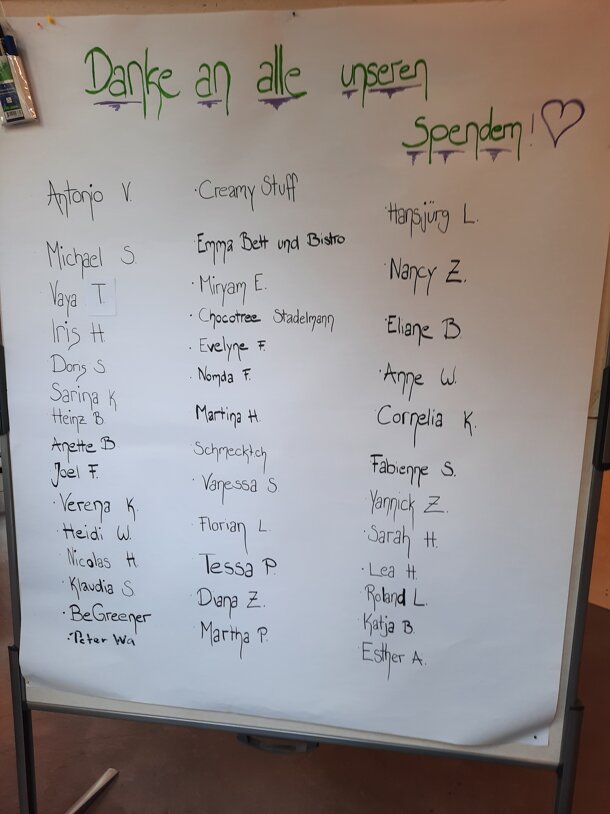 Danke an alle unseren
Spendern! ♡
Antonio V.
Michael S.
Vaya T.
Iris H.
Doris S
Sarina K
Heinz B
Anette B
Joel F.
· Verena K.
· Heidi W.
· Nicolas H.
· Klaudia S.
· BeGreener
· Peter Wa
· Creamy Stuff
· Emma Bett und Bistro
· Miryam E.
· Chocotree Stadelmann
· Evelyne F.
· Nomda F.
Martina H.
Schmeckt.ch
· Vanessa S.
· Florian L.
Tessa P.
Diana Z.
· Martha P.
· Hansjürg L.
· Nancy Z.
· Eliane B.
· Anne W.
Cornelia K.
Fabienne S.
Yannick Z.
· Sarah H.
· Lea H.
· Roland L.
· Katja B.
· Esther A.